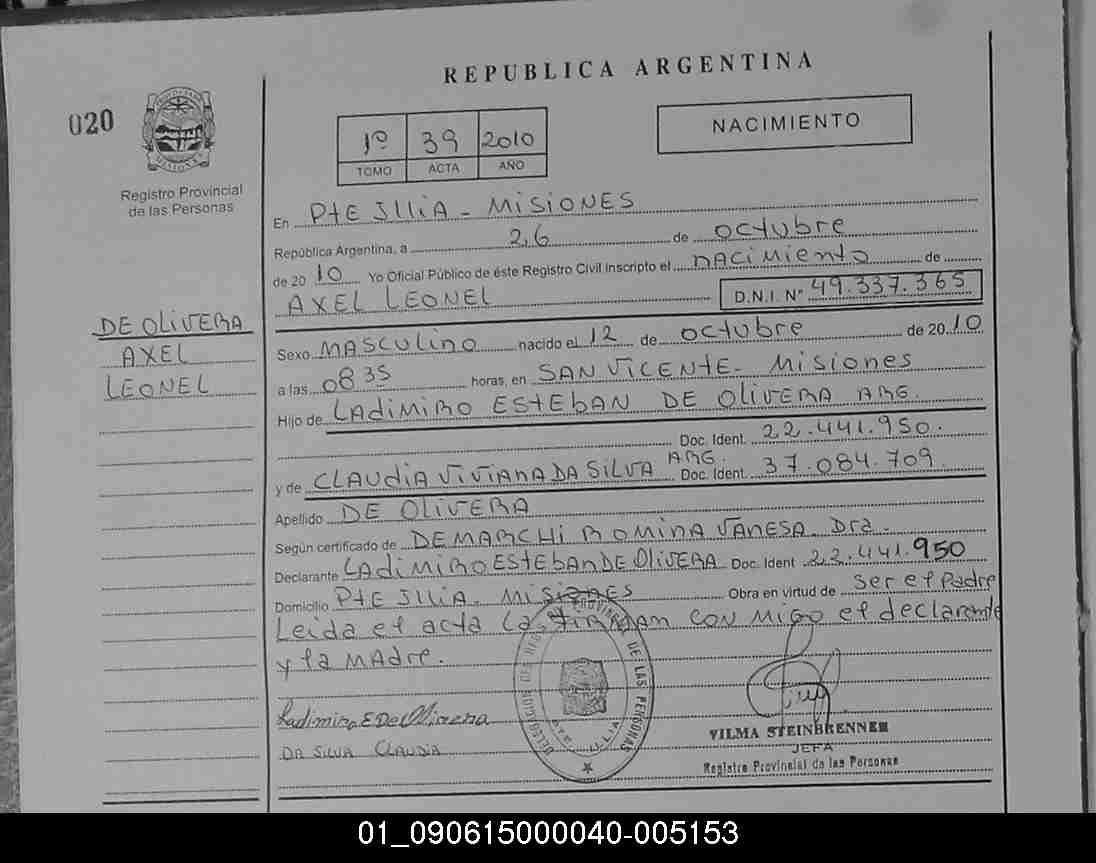 REPUBLICA ARGENTINA
020
NACIMIENTO
1º 39 2010
TOMO ACTA AÑO
MISIONES
Registro Provincial
de las Personas
En PtE JlliA - MisiONES
República Argentina, a 26 de octubre
de 2010 Yo Oficial Público de éste Registro Civil Inscripto el nacimiento de
AXEL LEONEL D.N.I. Nº 49.337.365
DE OLIVERA
AXEL
LEONEL
Sexo MASCULINO nacido el 12 de octubre de 2010
a las 0835 horas, en SAN VICENTE - Misiones
Hijo de LADIMIRO ESTEBAN DE OLIVERA ARG.
Doc. Ident. 22.441.950.
y de CLAUDIA VIVIANA DA SILVA ARG. Doc. Ident. 37.084.709
Apellido DE OLIVERA
Según certificado de DEMARCHI ROMINA VANESA Dra.
Declarante LADIMIRO ESTEBAN DE OLIVERA Doc. Ident 22.441.950
Domicilio PtE JlliA - MISIONES Obra en virtud de ser el Padre
Leida el acta la firman con migo el declarande
y la MAdre.
Ladimiro E De Olivera
DA SILVA CLAUDIA
DE LAS PERSONAS
VILMA STEINBRENNER
JEFA
Registro Provincial de las Personas
01_090615000040-005153